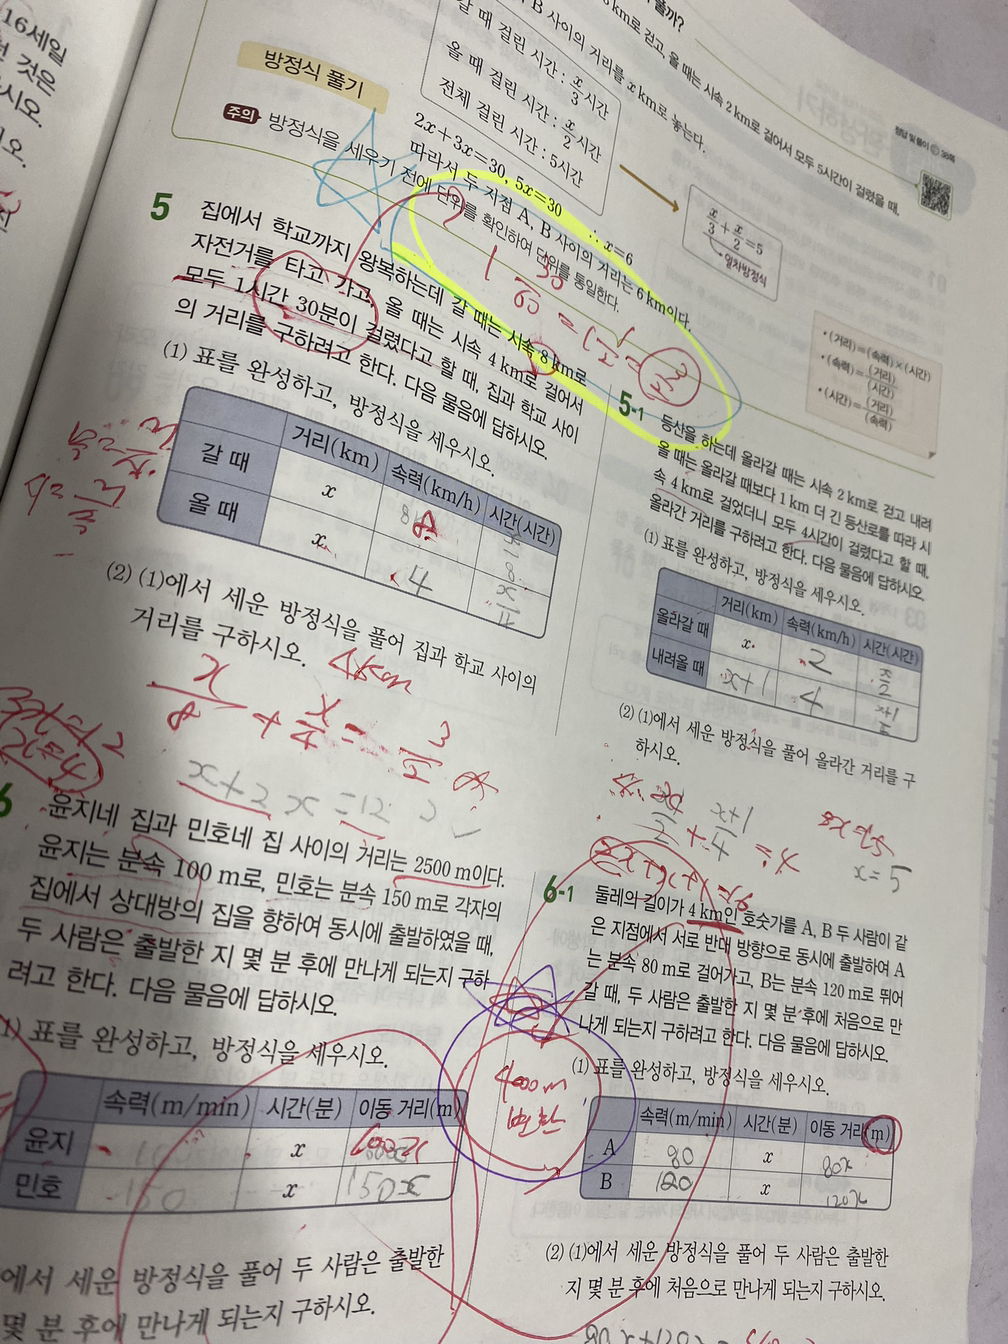 16세일
것은
시오.
오.
풀까?
3 km로 걷고, 올 때는 시속 2 km로 걸어서 모두 5시간이 걸렸을 때,
B 사이의 거리를 x km로 놓는다.
갈 때 걸린 시간 : x/3 시간
올 때 걸린 시간 : x/2 시간
전체 걸린 시간 : 5시간
x/3 + x/2 = 5
일차방정식
방정식 풀기
2x+3x=30, 5x=30 ∴ x=6
따라서 두 지점 A, B 사이의 거리는 6 km이다.
주의 방정식을 세우기 전에 단위를 확인하여 단위를 통일한다.
1 30/60 = 1 1/2 = 3/2
• (거리)=(속력)×(시간)
• (속력)=(거리)/(시간)
• (시간)=(거리)/(속력)
5 집에서 학교까지 왕복하는데 갈 때는 시속 8 km로
자전거를 타고 가고, 올 때는 시속 4 km로 걸어서
모두 1시간 30분이 걸렸다고 할 때, 집과 학교 사이
의 거리를 구하려고 한다. 다음 물음에 답하시오.
(1) 표를 완성하고, 방정식을 세우시오.
거리(km) 속력(km/h) 시간(시간)
갈 때 x 8 x/8
올 때 x 4 x/4
(2) (1)에서 세운 방정식을 풀어 집과 학교 사이의
거리를 구하시오. 4km
x/8 + x/4 = 3/2
x+2x=12
3x=12
x=4
5-1 등산을 하는데 올라갈 때는 시속 2 km로 걷고 내려
올 때는 올라갈 때보다 1 km 더 긴 등산로를 따라 시
속 4 km로 걸었더니 모두 4시간이 걸렸다고 할 때,
올라간 거리를 구하려고 한다. 다음 물음에 답하시오.
(1) 표를 완성하고, 방정식을 세우시오.
거리(km) 속력(km/h) 시간(시간)
올라갈 때 x 2 x/2
내려올 때 x+1 4 x+1/4
(2) (1)에서 세운 방정식을 풀어 올라간 거리를 구
하시오.
x/2 + x+1/4 = 4
2x+x+1=16
x=5
6 윤지네 집과 민호네 집 사이의 거리는 2500 m이다.
윤지는 분속 100 m로, 민호는 분속 150 m로 각자의
집에서 상대방의 집을 향하여 동시에 출발하였을 때,
두 사람은 출발한 지 몇 분 후에 만나게 되는지 구하
려고 한다. 다음 물음에 답하시오.
1) 표를 완성하고, 방정식을 세우시오.
속력(m/min) 시간(분) 이동 거리(m)
윤지 100 x 100x
민호 150 x 150x
에서 세운 방정식을 풀어 두 사람은 출발한
몇 분 후에 만나게 되는지 구하시오.
4000m
변환
6-1 둘레의 길이가 4 km인 호숫가를 A, B 두 사람이 같
은 지점에서 서로 반대 방향으로 동시에 출발하여 A
는 분속 80 m로 걸어가고, B는 분속 120 m로 뛰어
갈 때, 두 사람은 출발한 지 몇 분 후에 처음으로 만
나게 되는지 구하려고 한다. 다음 물음에 답하시오.
(1) 표를 완성하고, 방정식을 세우시오.
속력(m/min) 시간(분) 이동 거리(m)
A 80 x 80x
B 120 x 120x
(2) (1)에서 세운 방정식을 풀어 두 사람은 출발한
지 몇 분 후에 처음으로 만나게 되는지 구하시오.